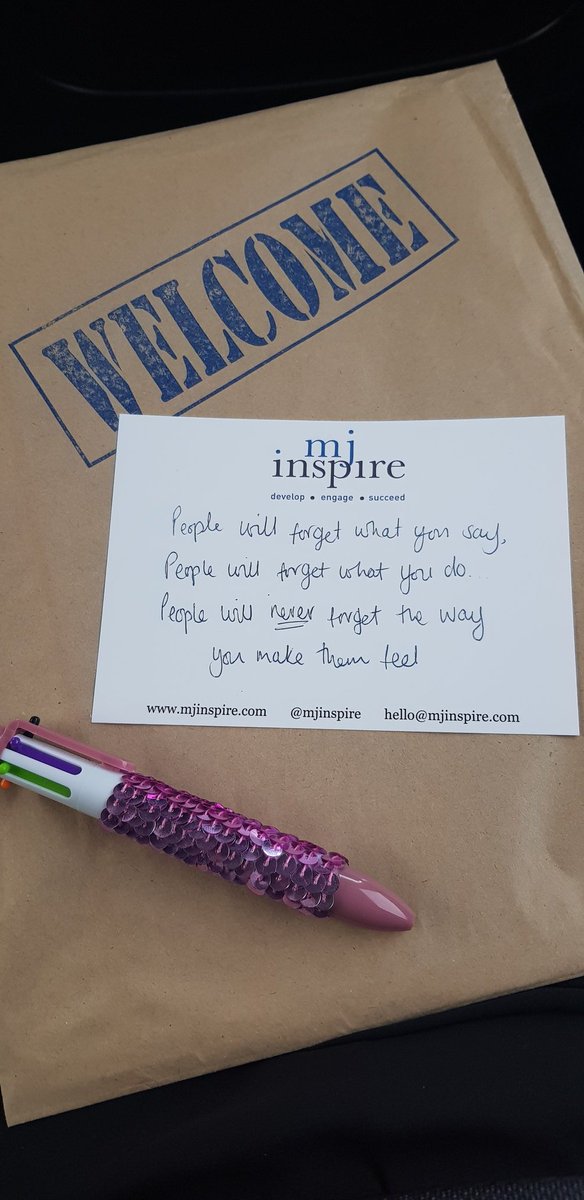 WELCOME
mj
inspire
develop • engage • succeed
People will forget what you say,
People will forget what you do.
People will never forget the way
you make them feel
www.mjinspire.com @mjinspire hello@mjinspire.com